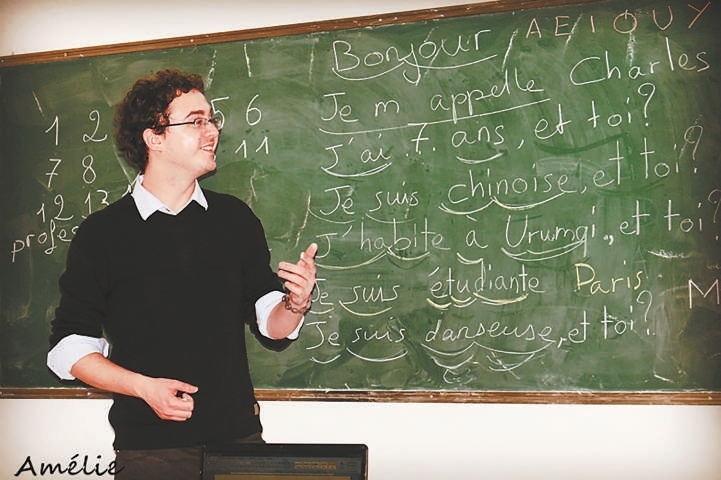 A E I O U Y
Bonjour
Je m appelle Charles
J'ai 7 ans, et toi?
Je suis chinoise, et toi?
J'habite à Urumqi, et toi?
Je suis étudiante Paris
Je suis danseuse, et toi?
1 2 5 6
7 8 11
12 13
profes
M
Amélie